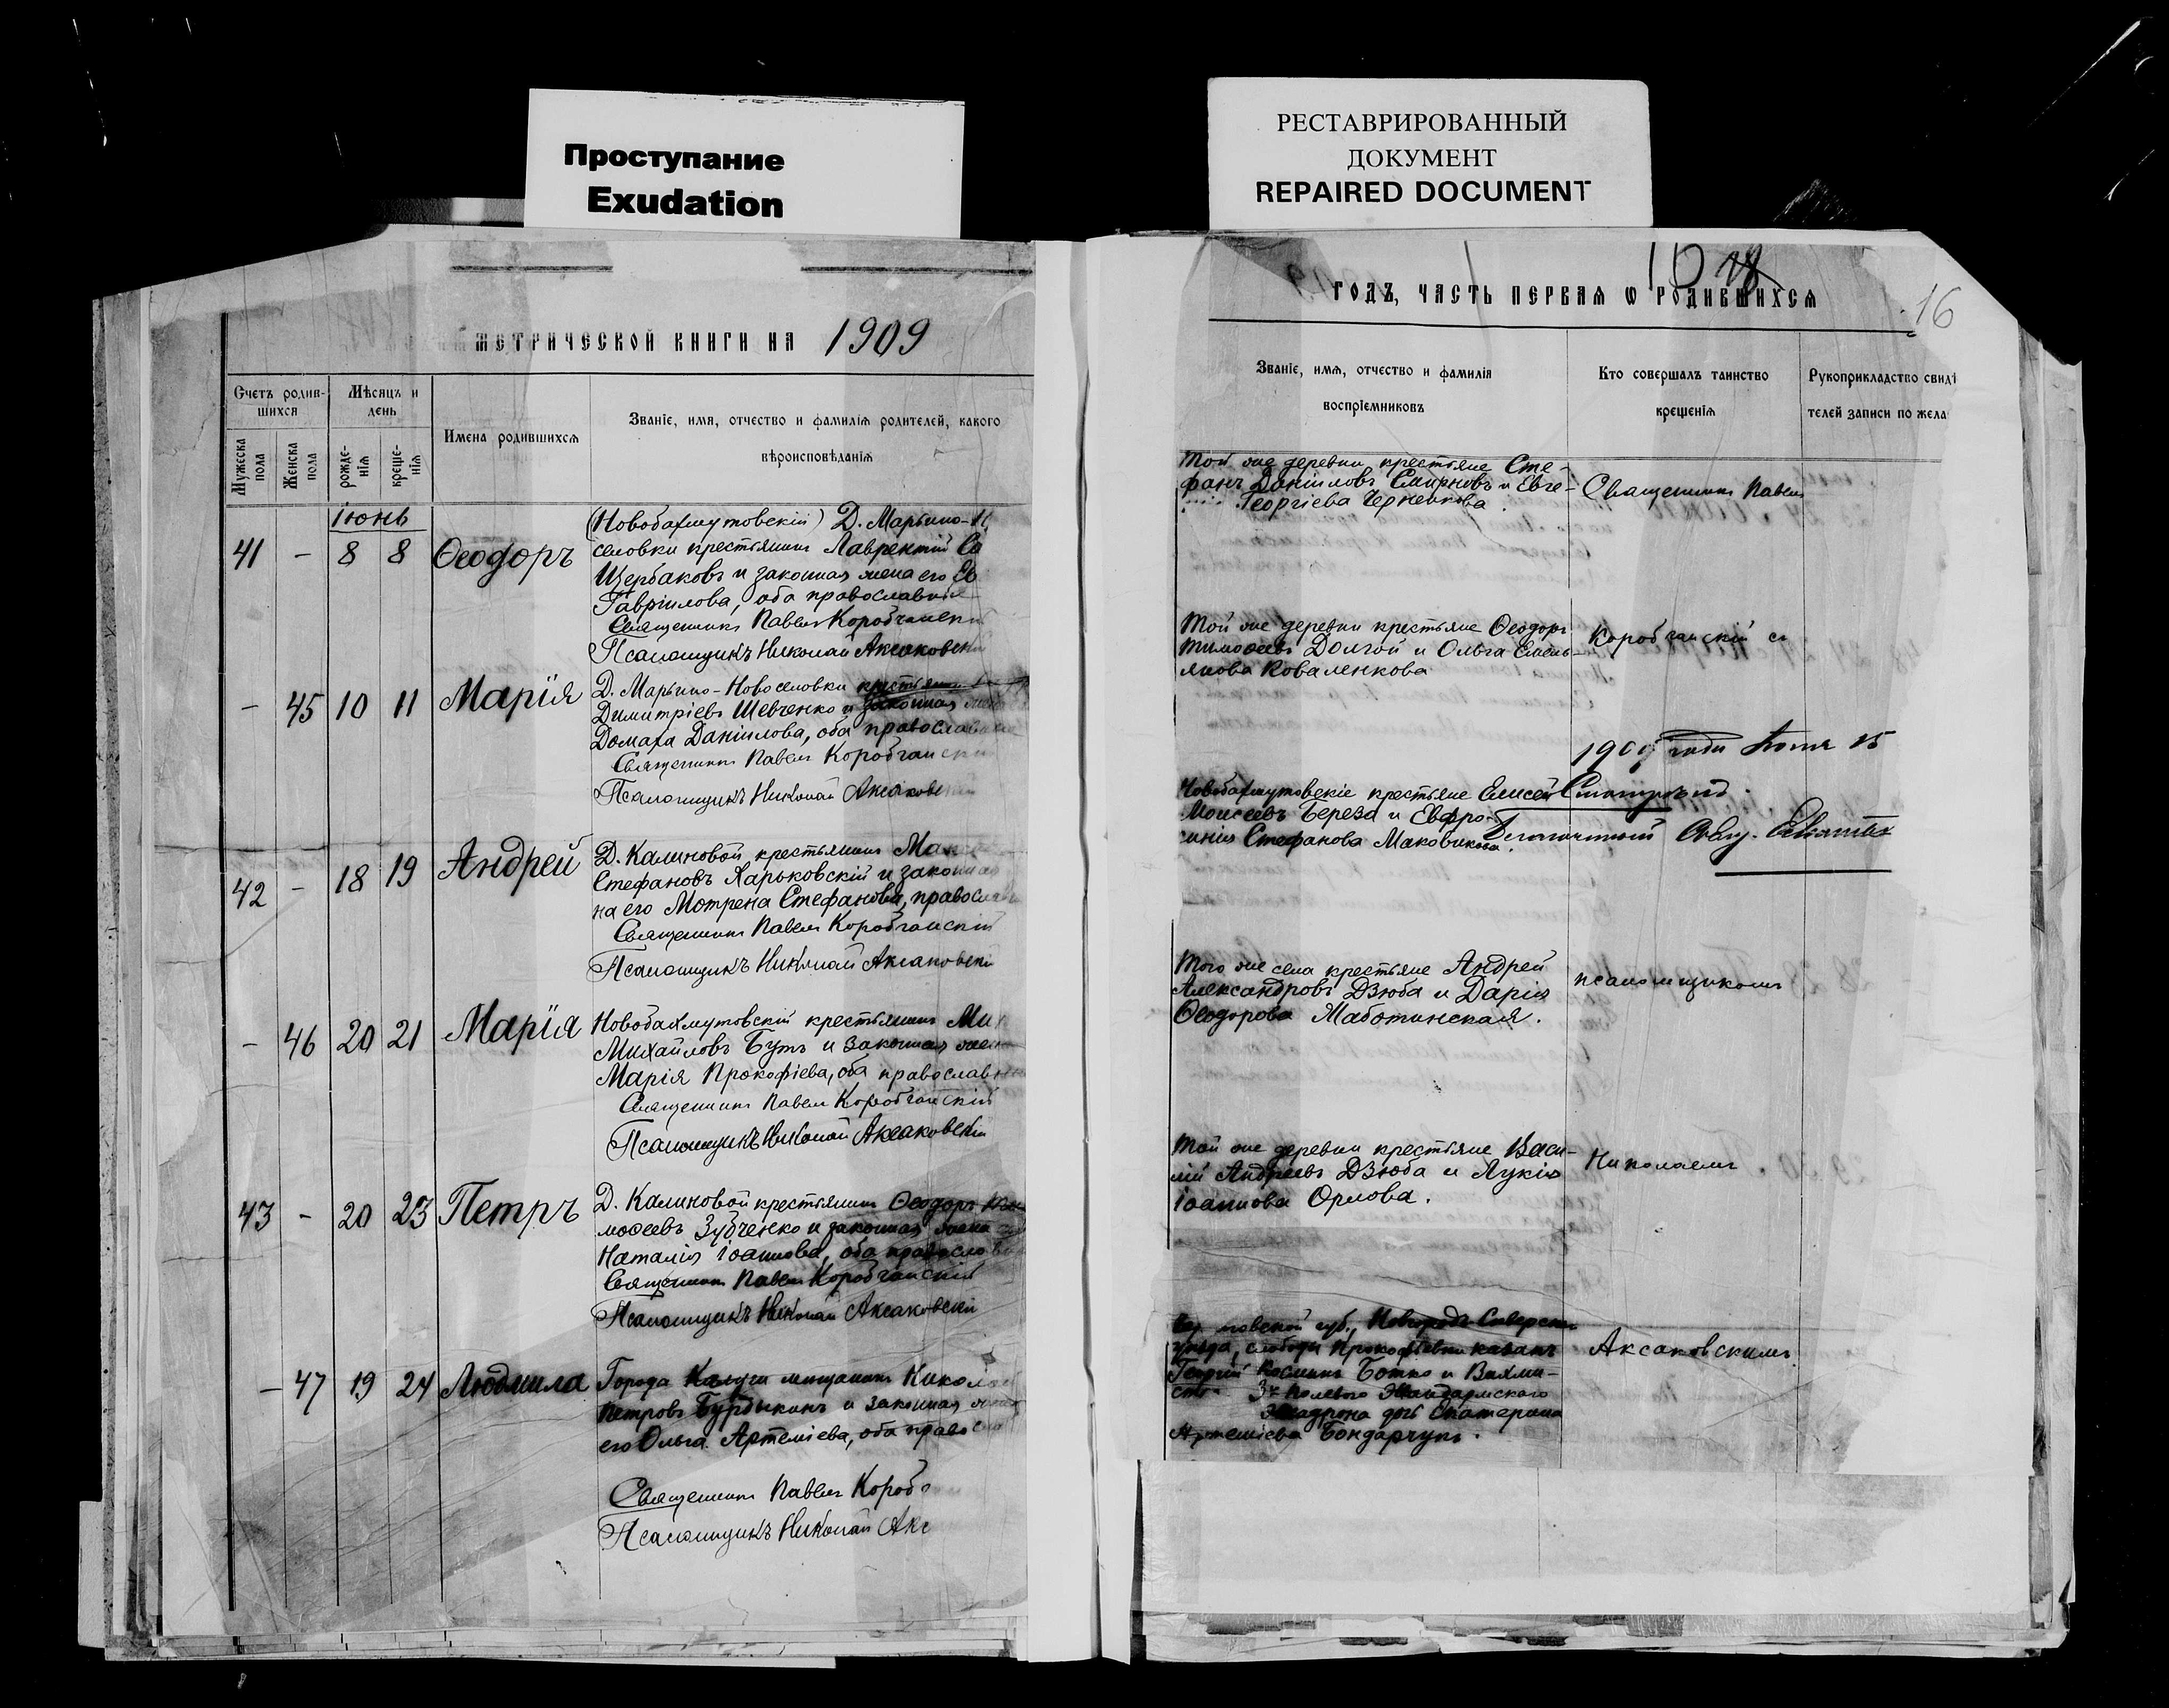 Проступание
Exudation
РЕСТАВРИРОВАННЫЙ
ДОКУМЕНТ
REPAIRED DOCUMENT
метрической книги на 1909
Счетъ родив-
шихся
Мѣсяцъ и
день
Мужеска
пола
Женска
пола
рожде-
нія
креще-
нія
Имена родившихся
Званіе, имя, отчество и фамилія родителей, какого
вѣроисповѣданія
Іюнь
41 - 8 8 Ѳеодоръ
(Новобахмутовскій) Д. Марьино-Н
селовки крестьянинъ Лаврентій
Щербаковъ и законная жена его
Гавріилова, оба православные
Священникъ Павелъ Коробчанскі
Псаломщикъ Николай Аксаковскі
- 45 10 11 Марія
Д. Марьино-Новоселовки крестьянинъ
Димитріевъ Шевченко и законная жена
Домаха Даніилова, оба православные
Священникъ Павелъ Коробчански
Псаломщикъ Николай Аксаковс
42 - 18 19 Андрей
Д. Калиновой крестьянинъ Мак
Стефановъ Харьковскій и законная
на его Мотрена Стефанова, православ
Священникъ Павелъ Коробчанскій
Псаломщикъ Николай Аксаковскі
- 46 20 21 Марія
Новобахмутовскій крестьянинъ Ми
Михайловъ Бутъ и законная жен
Марія Прокофіева, оба православн
Священникъ Павелъ Коробчанскій
Псаломщикъ Николай Аксаковскій
43 - 20 23 Петръ
Д. Калиновой крестьянинъ Ѳеодоръ Ти
моѳеевъ Зубченко и законная жена
Наталія Іоаннова, оба православ
Священникъ Павелъ Коробчанскій
Псаломщикъ Николай Аксаковскій
- 47 19 24 Людмила
Города Калуги мѣщанинъ Николай
Петровъ Бурдыкинъ и законная жена
его Ольга Артеміева, оба правосл
Священникъ Павелъ Короб
Псаломщикъ Николай Акс
16
годъ, часть первая ѡ родившихся
16
Званіе, имя, отчество и фамилія
воспріемниковъ
Кто совершалъ таинство
крещенія
Рукоприкладство свидѣ
телей записи по жела
Той же деревни крестьяне Сте-
фанъ Даніиловъ Смирновъ и Евге-
Георгіева Черненкова.
Священникъ Павелъ
Той же деревни крестьяне Ѳеодоръ
Тимоѳеевъ Долгой и Ольга Емель-
янова Коваленкова
Коробчанскій съ
1909 года Іюня 25
Новобахмутовскіе крестьяне Елисей
Моисеевъ Береза и Евфро-
синія Стефанова Маковикова.
Смотрѣлъ
Благочинный Свящ.
Того же села крестьяне Андрей
Александровъ Дзюба и Дарія
Ѳеодорова Маботинская.
псаломщикомъ
Той же деревни крестьяне Васи-
лій Андреевъ Дзюба и Лукія
Іоаннова Орлова.
Николаемъ
губ., Новгородъ-Сѣверск
уѣзда, слободы Прокофіевки казакъ
Георгій Косминъ Ботко и Вахми-
стр 3го Полевого Жандармскаго
Эскадрона дочь Екатерина
Артеміева Бондарчукъ.
Аксаковскимъ